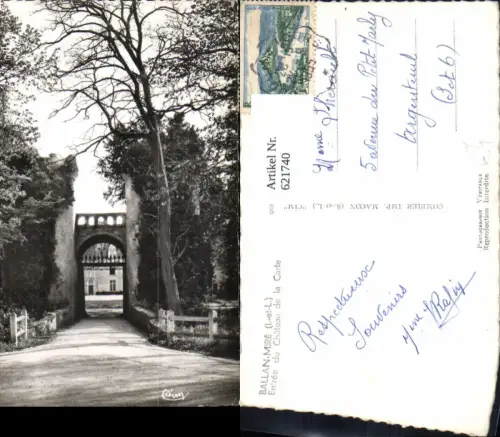 Cim
BALLAN-MIRÉ (I.-et-L.)
Entrée du Château de la Carte
Respectueux
Souvenirs
Mme
COMBIER IMP. MACON (S.-et-L.) "CIM"
Artikel Nr.
621740
Mme
5 avenue du Petit Marly
Argenteuil
(S et O)
Photographie Véritable
Reproduction Interdite